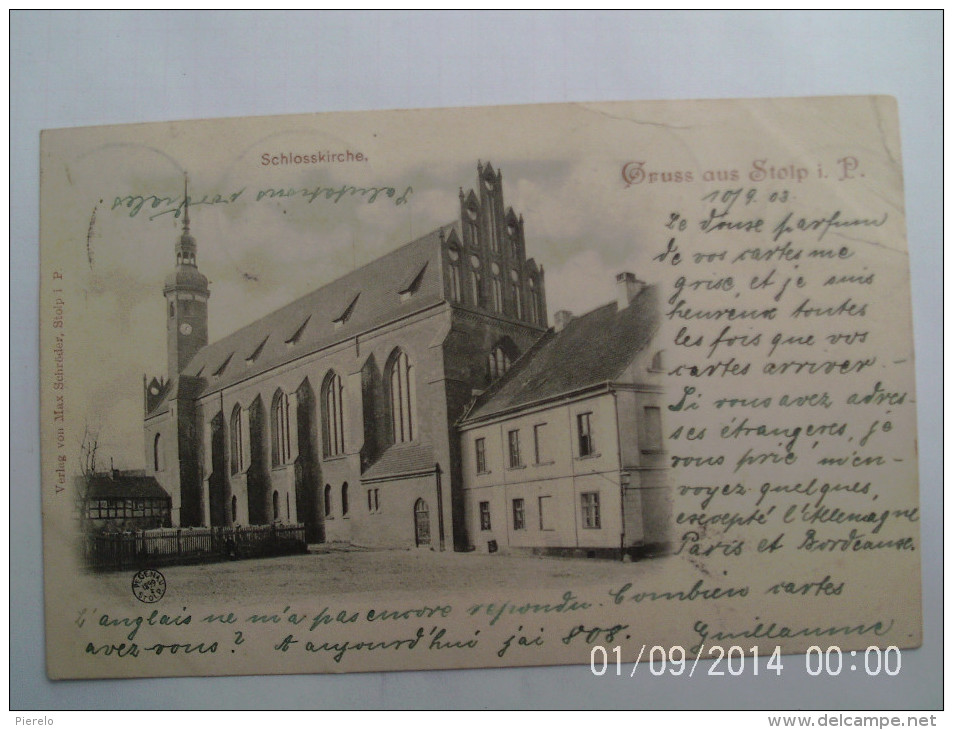 Schlosskirche.
Gruss aus Stolp i. P.
Salutations cordiales
10/9. 03.
Le douse parfum
de vos cartes me
grise, et je suis
heureux toutes
les fois que vos
cartes arriver -
Si vous avez adres-
ses étrangères, je
vous prie m'en-
voyez quelques,
excepté l'Allemagne
Paris et Bordeause.
L'anglais ne m'a pas encore repondu. Combien cartes
avez-vous? A aujourd'hui j'ai 808. Guillaume
Verlag von Max Schröder, Stolp i P
STOLP
01/09/2014 00:00
Pierelo
www.delcampe.net